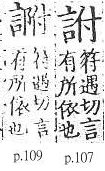 詂
符遇切言
有所依也
符遇切言
有所依也
p.109
p.107